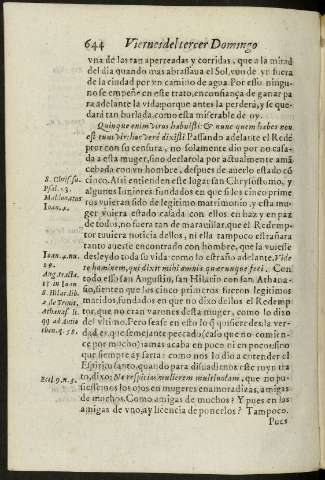 644 Viernes del tercer Domingo
vna de las tan aperreadas y corridas, que a la mitad
del dia quando mas abrassaua el Sol, vuo de yr fuera
de la ciudad por vn camino de agua. Por esso ningu-
no se empeñe en este trato, en confiança de ganar pa
ra adelante la vida: porque antes la perderá, y se que-
dará tan burlada, como esta miserable de oy.
Quinque enim viros habuisti: & nunc quem habes non
est tuus vir: hoc verè dixisti. Passando adelante el Redẽ
ptor con su censura, no solamente dio por no casa-
da a esta muger, sino declarola por actualmente amã
cebada con vn hombre, despues de auerlo estado cõ
S. Chrysos. su.
Psal. 13.
Maldonatus
Ioan. 4.
cinco. Assi entienden este lugar san Chrysostomo, y
algunos Iuniores fundados en que si les cinco prime
ros vuieran sido de legitimo matrimonio, y esta mu
ger vuiera estado casada con ellos en haz y en paz
de todos, no fuera tan de marauillar, que el Redemp-
tor tuuiera noticia dellos, ni ella tampoco estrañara
tanto auerse encontrado con hombre, que la vuiesse
Ioan. 4. nu.
29.
Aug. tracta.
15 in Ioan
S. Hilar. lib.
de Trinit.
Athanas. li.
desleydo toda su vida: como lo estraño adelante. Vide
te hominem, qui dixit mihi omnia quæcunque feci. Con
todo esso san Augustin, san Hilario con san Athana-
sio, sienten que los cinco primeros fueron legitimos
maridos, fundados en que no dixo dellos el Redemp
tor, que no eran varones desta muger, como lo dixo
del vltimo. Pero sease en esto lo q̃ quisieredes, la ver-
dad es, que semejante peccado (caso que no comien-
ce por mucho) jamas acaba en poco ni en pocos: sino
que siempre da sarta: como nos lo dio a entender el
Espiritu santo, quando para disuadirnos este ruyn tra
Eccl. 9. n. 3.
to, dixo: Ne respicias mulierem multiuolam, que no pu-
siessemos los ojos en mugeres enamoradizas, amigas
de muchos. Como amigas de muchos? Y pues en las
amigas de vno, ay licencia de ponerlos? Tampoco.
Pues